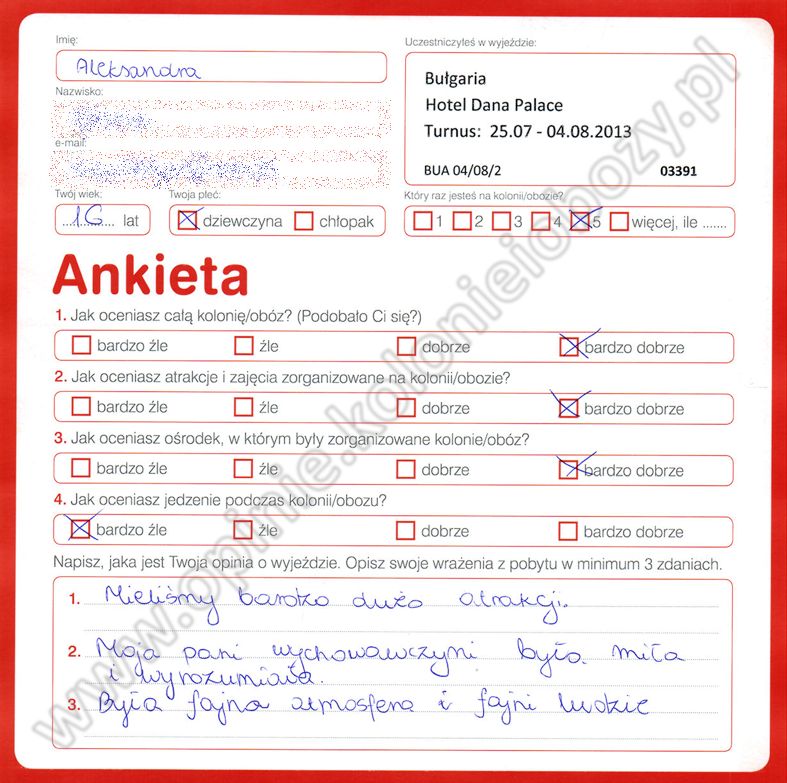 Imię:
Aleksandra
Nazwisko:
e-mail:
Twój wiek:
16 lat
Twoja płeć:
dziewczyna chłopak
Uczestniczyłeś w wyjeździe:
Bułgaria
Hotel Dana Palace
Turnus: 25.07 - 04.08.2013
BUA 04/08/2 03391
Który raz jesteś na kolonii/obozie?
1 2 3 4 5 więcej, ile .......
Ankieta
1. Jak oceniasz całą kolonię/obóz? (Podobało Ci się?)
bardzo źle źle dobrze bardzo dobrze
2. Jak oceniasz atrakcje i zajęcia zorganizowane na kolonii/obozie?
bardzo źle źle dobrze bardzo dobrze
3. Jak oceniasz ośrodek, w którym były zorganizowane kolonie/obóz?
bardzo źle źle dobrze bardzo dobrze
4. Jak oceniasz jedzenie podczas kolonii/obozu?
bardzo źle źle dobrze bardzo dobrze
Napisz, jaka jest Twoja opinia o wyjeździe. Opisz swoje wrażenia z pobytu w minimum 3 zdaniach.
1. Mieliśmy bardzo dużo atrakcji.
2. Moja pani wychowawczyni była miła
i wyrozumiała.
3. Była fajna atmosfera i fajni ludzie
www.opinie.kolonieiobozy.pl